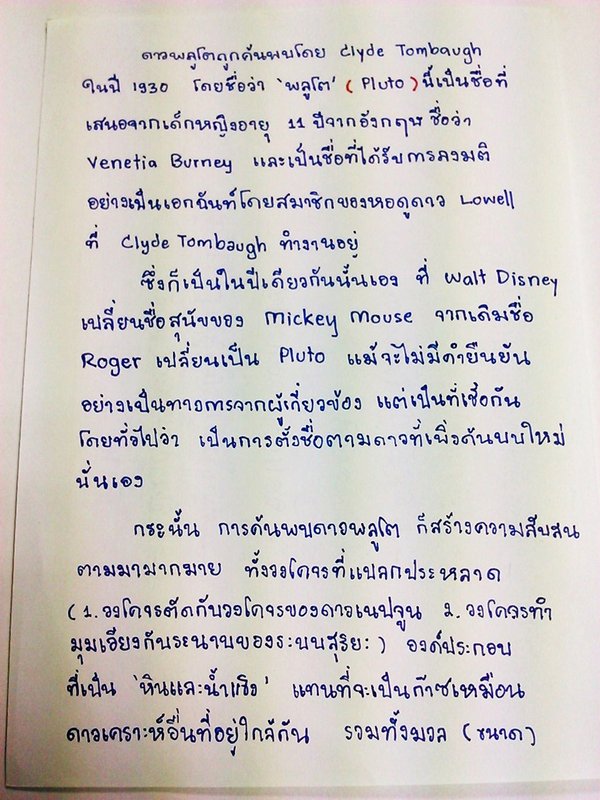 ดาวพลูโตถูกค้นพบโดย Clyde Tombaugh
ในปี 1930 โดยชื่อว่า 'พลูโต' (Pluto) นี้เป็นชื่อที่
เสนอจากเด็กหญิงอายุ 11 ปีจากอังกฤษ ชื่อว่า
Venetia Burney และเป็นชื่อที่ได้รับการลงมติ
อย่างเป็นเอกฉันท์โดยสมาชิกของหอดูดาว Lowell
ที่ Clyde Tombaugh ทำงานอยู่
ซึ่งก็เป็นในปีเดียวกันนั้นเอง ที่ Walt Disney
เปลี่ยนชื่อสุนัขของ Mickey Mouse จากเดิมชื่อ
Roger เปลี่ยนเป็น Pluto แม้จะไม่มีคำยืนยัน
อย่างเป็นทางการจากผู้เกี่ยวข้อง แต่เป็นที่เชื่อกัน
โดยทั่วไปว่า เป็นการตั้งชื่อตามดาวที่เพิ่งค้นพบใหม่
นั่นเอง
กระนั้น การค้นพบดาวพลูโต ก็สร้างความสับสน
ตามมามากมาย ทั้งวงโคจรที่แปลกประหลาด
(1. วงโคจรตัดกับวงโคจรของดาวเนปจูน 2. วงโคจรทำ
มุมเอียงกับระนาบของระบบสุริยะ) องค์ประกอบ
ที่เป็น 'หินและน้ำแข็ง' แทนที่จะเป็นก๊าซเหมือน
ดาวเคราะห์อื่นที่อยู่ใกล้กัน รวมทั้งมวล (ขนาด)